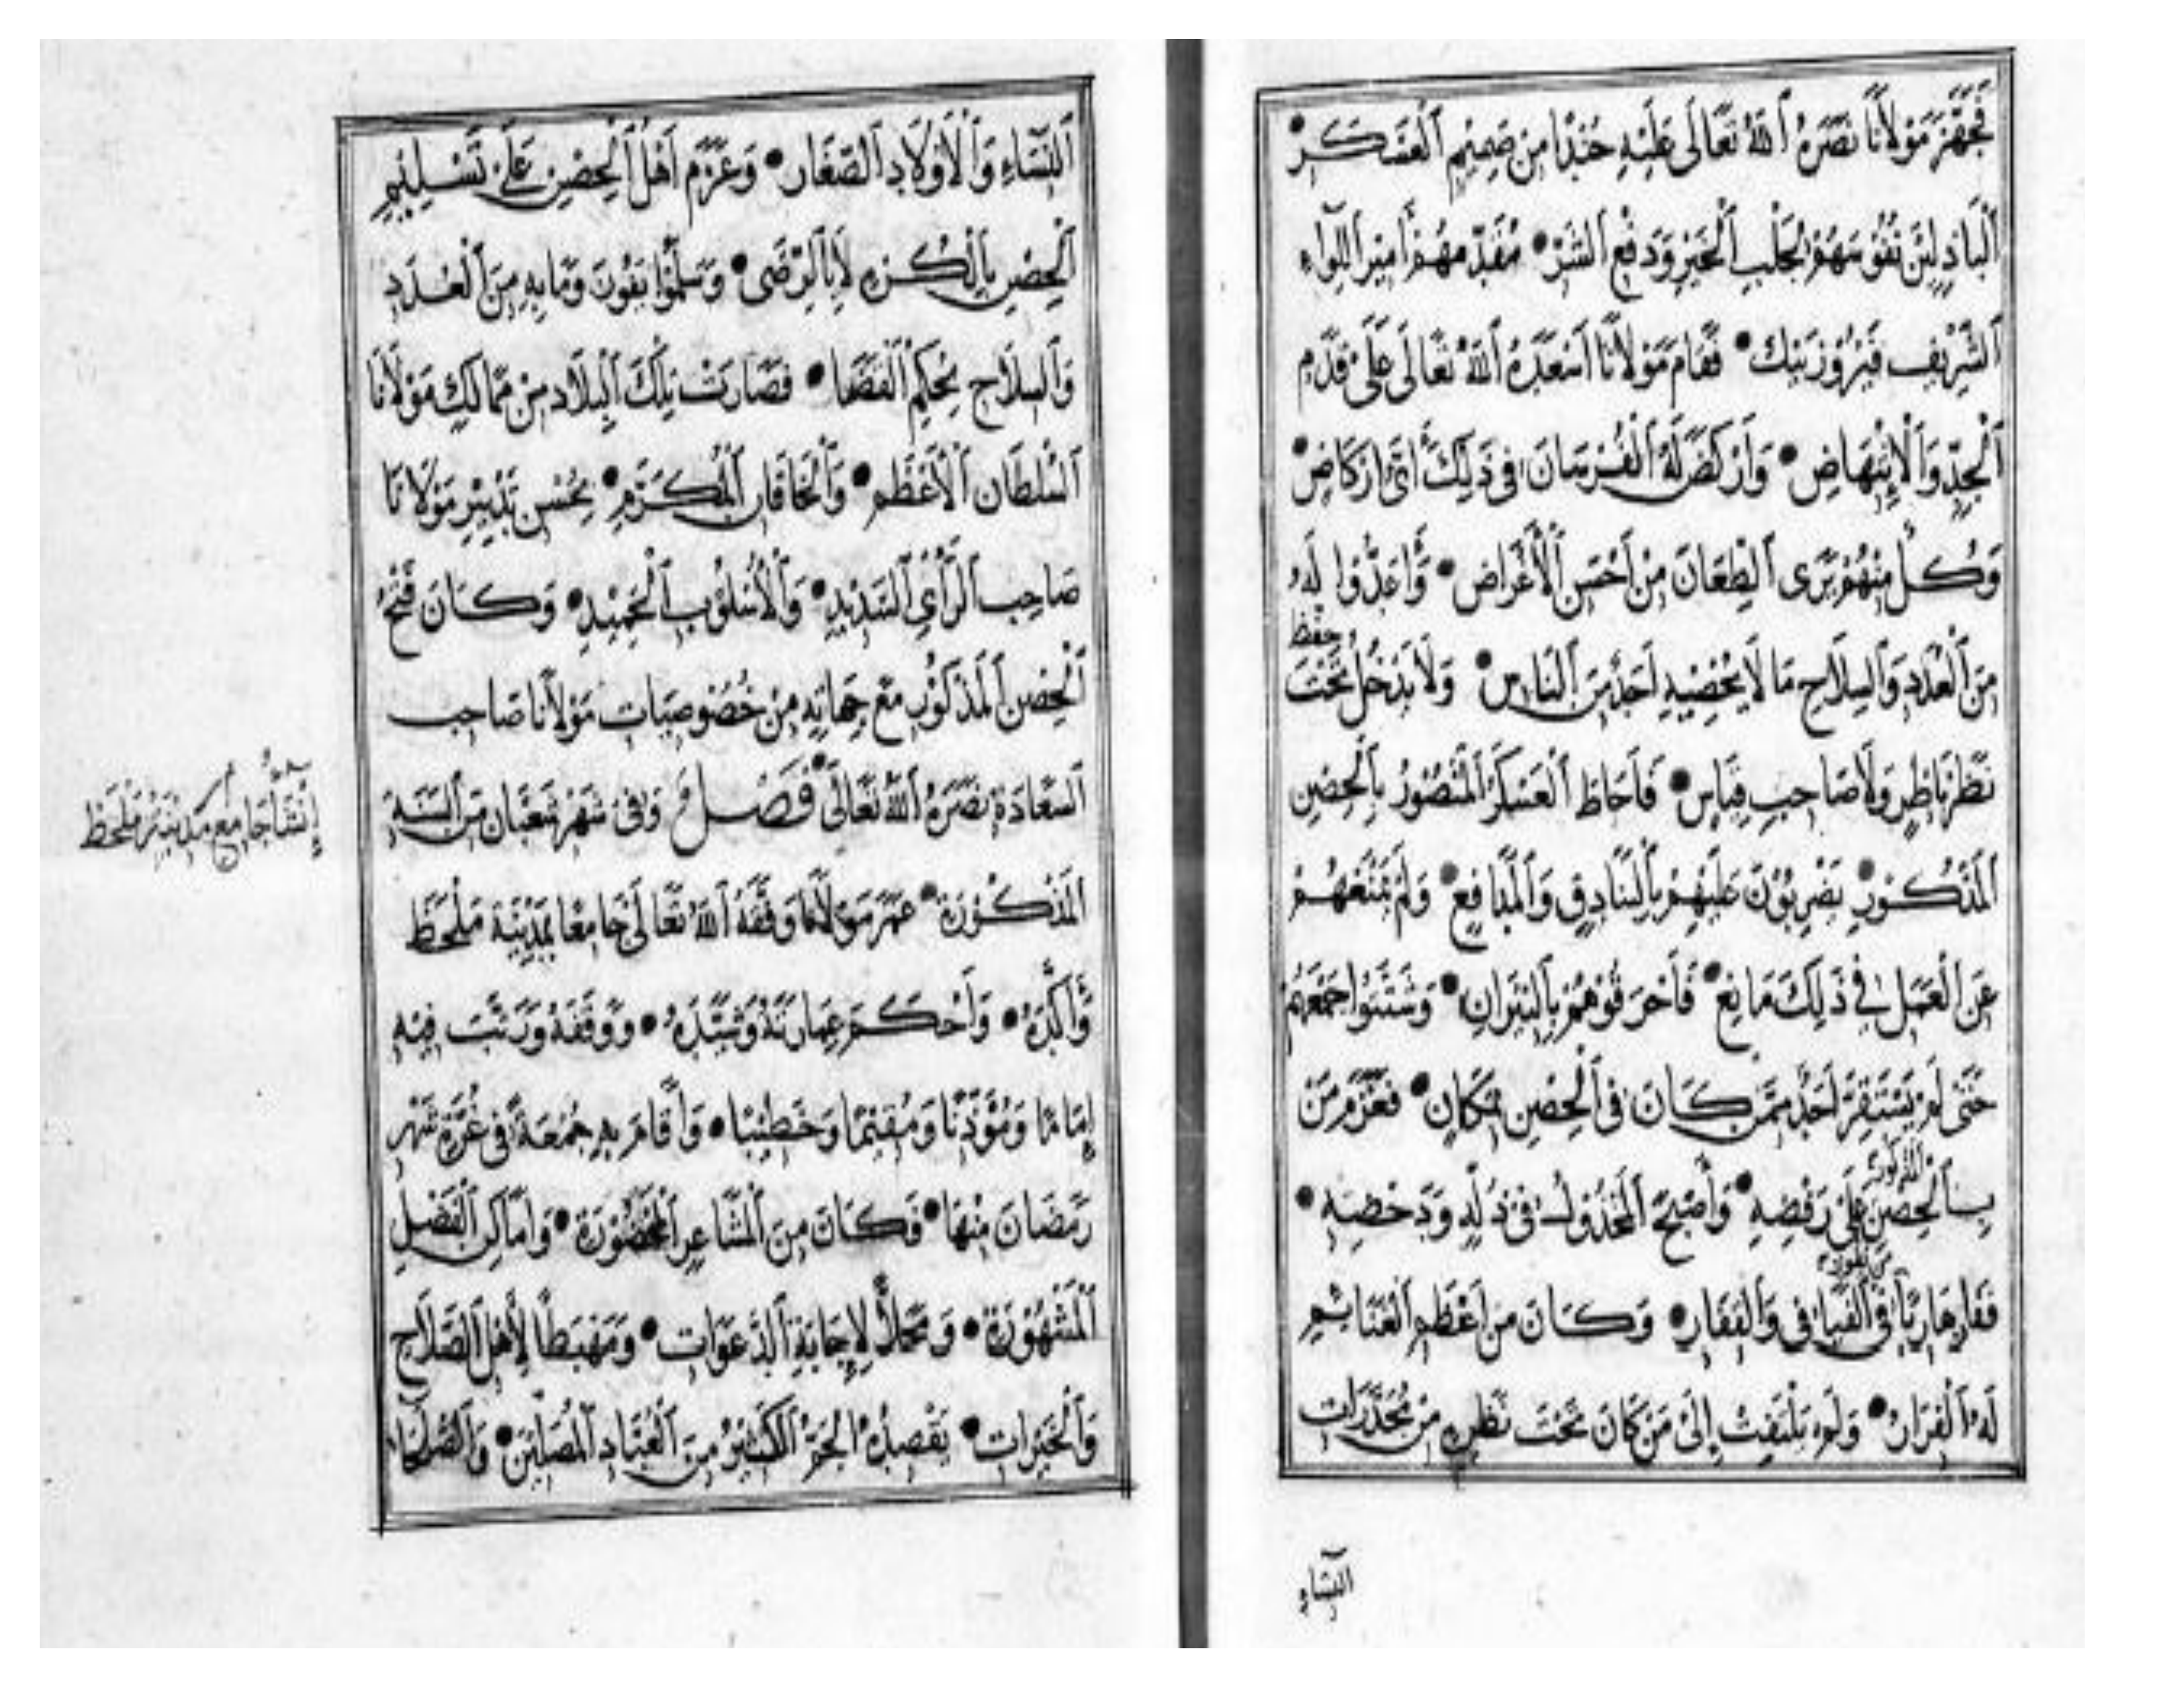 فَجَهَّزَ مَوْلَانَا نَصَرَهُ ٱللهُ تَعَالَى عَلَيْهِ جُنْدًا مِنْ صَمِيمِ ٱلْعَسْكَرِ
ٱلْبَاذِلِينَ نُفُوسَهُمْ لِجَلْبِ ٱلْخَيْرِ وَدَفْعِ ٱلشَّرِّ • مُقَدَّمُهُمْ أَمِيرُ اللِّوَاءِ
ٱلشَّرِيفِ فَيْرُوزْ بَيْك • فَقَامَ مَوْلَانَا أَسْعَدَهُ ٱللهُ تَعَالَى عَلَى قَدَمِ
ٱلْجِدِّ وَٱلْاِنْتِهَاضِ • وَأَرْكَضَ لَهُ ٱلْفُرْسَانَ فِي ذَلِكَ أَيَّ إِرْكَاضٍ •
وَكُلٌّ مِنْهُمْ يَرَى ٱلطِّعَانَ مِنْ أَحْسَنِ ٱلْأَغْرَاضِ • وَأَعَدُّوا لَهُ
مِنَ ٱلْعُدَدِ وَٱلسِّلَاحِ مَا لَا يُحْصِيهِ أَحَدٌ مِنَ ٱلنَّاسِ • وَلَا يَدْخُلُ تَحْتَ حفظ
نَظَرِ نَاظِرٍ وَلَا صَاحِبِ قِيَاسٍ • فَأَحَاطَ ٱلْعَسْكَرُ ٱلْمَنْصُورُ بِٱلْحِصْنِ
ٱلْمَذْكُورِ • يَضْرِبُونَ عَلَيْهِمْ بِٱلْبَنَادِقِ وَٱلْمَدَافِعِ • وَلَمْ يَمْنَعْهُمْ
عَنِ ٱلْعَمَلِ فِي ذَلِكَ مَانِعٌ • فَأَحْرَقُوهُمْ بِٱلنِّيرَانِ • وَشَتَّتُوا جَمْعَهُمْ
حَتَّى لَمْ يَسْتَقِرَّ أَحَدٌ مِمَّنْ كَانَ فِي ٱلْحِصْنِ بِمَكَانٍ • فَعَزَمَ مَنْ
بِٱلْحِصْنِ المذكور عَلَى رَفْضِهِ • وَأَصْبَحَ ٱلْمَخْذُولُ فِي ذُلِّهِ وَدَحْضِهِ •
فَفَارَ هَارِبًا فِي ٱلْفَيَافِي وَٱلْقِفَارِ • وَكَانَ مِنْ أَعْظَمِ ٱلْغَنَائِمِ
لَهُ ٱلْفِرَارُ • وَلَمْ يَلْتَفِتْ إِلَى مَنْ كَانَ تَحْتَ نَظَرِهِ مِنْ مُخَدَّرَاتِ
النساء
ٱلنِّسَاءِ وَٱلْأَوْلَادِ ٱلصِّغَارِ • وَعَزَمَ أَهْلُ ٱلْحِصْنِ عَلَى تَسْلِيمِ
ٱلْحِصْنِ بِٱلْكُرْهِ لَا بِٱلرِّضَى • وَسَلَّمُوا وَمَا بِهِ مِنَ ٱلْعُدَدِ
وَٱلسِّلَاحِ بِحُكْمِ ٱلْقَضَا • فَصَارَتْ تِلْكَ ٱلْبِلَادُ مِنْ مَمَالِكِ مَوْلَانَا
ٱلسُّلْطَانِ ٱلْأَعْظَمِ • وَٱلْخَاقَانِ ٱلْمُكَرَّمِ • بِحُسْنِ تَدْبِيرِ مَوْلَانَا
صَاحِبِ ٱلرَّأْيِ ٱلسَّدِيدِ • وَٱلْأُسْلُوبِ ٱلْحَمِيدِ • وَكَانَ فَتْحُ
ٱلْحِصْنِ ٱلْمَذْكُورِ مَعَ جِهَاتِهِ مِنْ خُصُوصِيَّاتِ مَوْلَانَا صَاحِبِ
ٱلسَّعَادَةِ نَصَرَهُ ٱللهُ تَعَالَى • فَصْلٌ وَفِي شَهْرِ شَعْبَانَ مِنَ ٱلسَّنَةِ
ٱلْمَذْكُورَةِ • عَمَّرَ مَوْلَانَا وَفَّقَهُ ٱللهُ تَعَالَى جَامِعًا بِمَدِينَةِ مَلْحَظَ
إنشأ جامع مدينة ملحظ
وَأَكَّدَهُ • وَأَحْكَمَ عِمَارَتَهُ وَشَيَّدَهُ • وَوَقَفَهُ وَرَتَّبَ فِيهِ
إِمَامًا وَمُؤَذِّنًا وَمُقِيمًا وَخَطِيبًا • وَأَقَامَ بِهِ جُمُعَةً فِي غُرَّةِ شَهْرِ
رَمَضَانَ مِنْهَا • فَكَانَ مِنَ ٱلْمَشَاعِرِ ٱلْمَحْضُورَةِ • وَأَمَاكِنِ ٱلْفَضْلِ
ٱلْمَشْهُورَةِ • وَمَحَلًّا لِإِجَابَةِ ٱلدَّعَوَاتِ • وَمَهْبَطًا لِأَهْلِ ٱلصَّلَاحِ
وَٱلْخَيْرَاتِ • يَقْصِدُهُ ٱلْكَثِيرُ مِنَ ٱلْعُبَّادِ ٱلْمُصَلِّينَ • وَٱلصُّلَحَاءِ